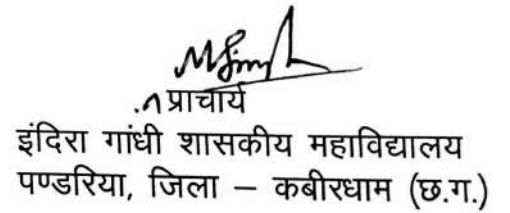 प्राचार्य
इंदिरा गांधी शासकीय महाविद्यालय
पण्डरिया, जिला – कबीरधाम (छ.ग.)